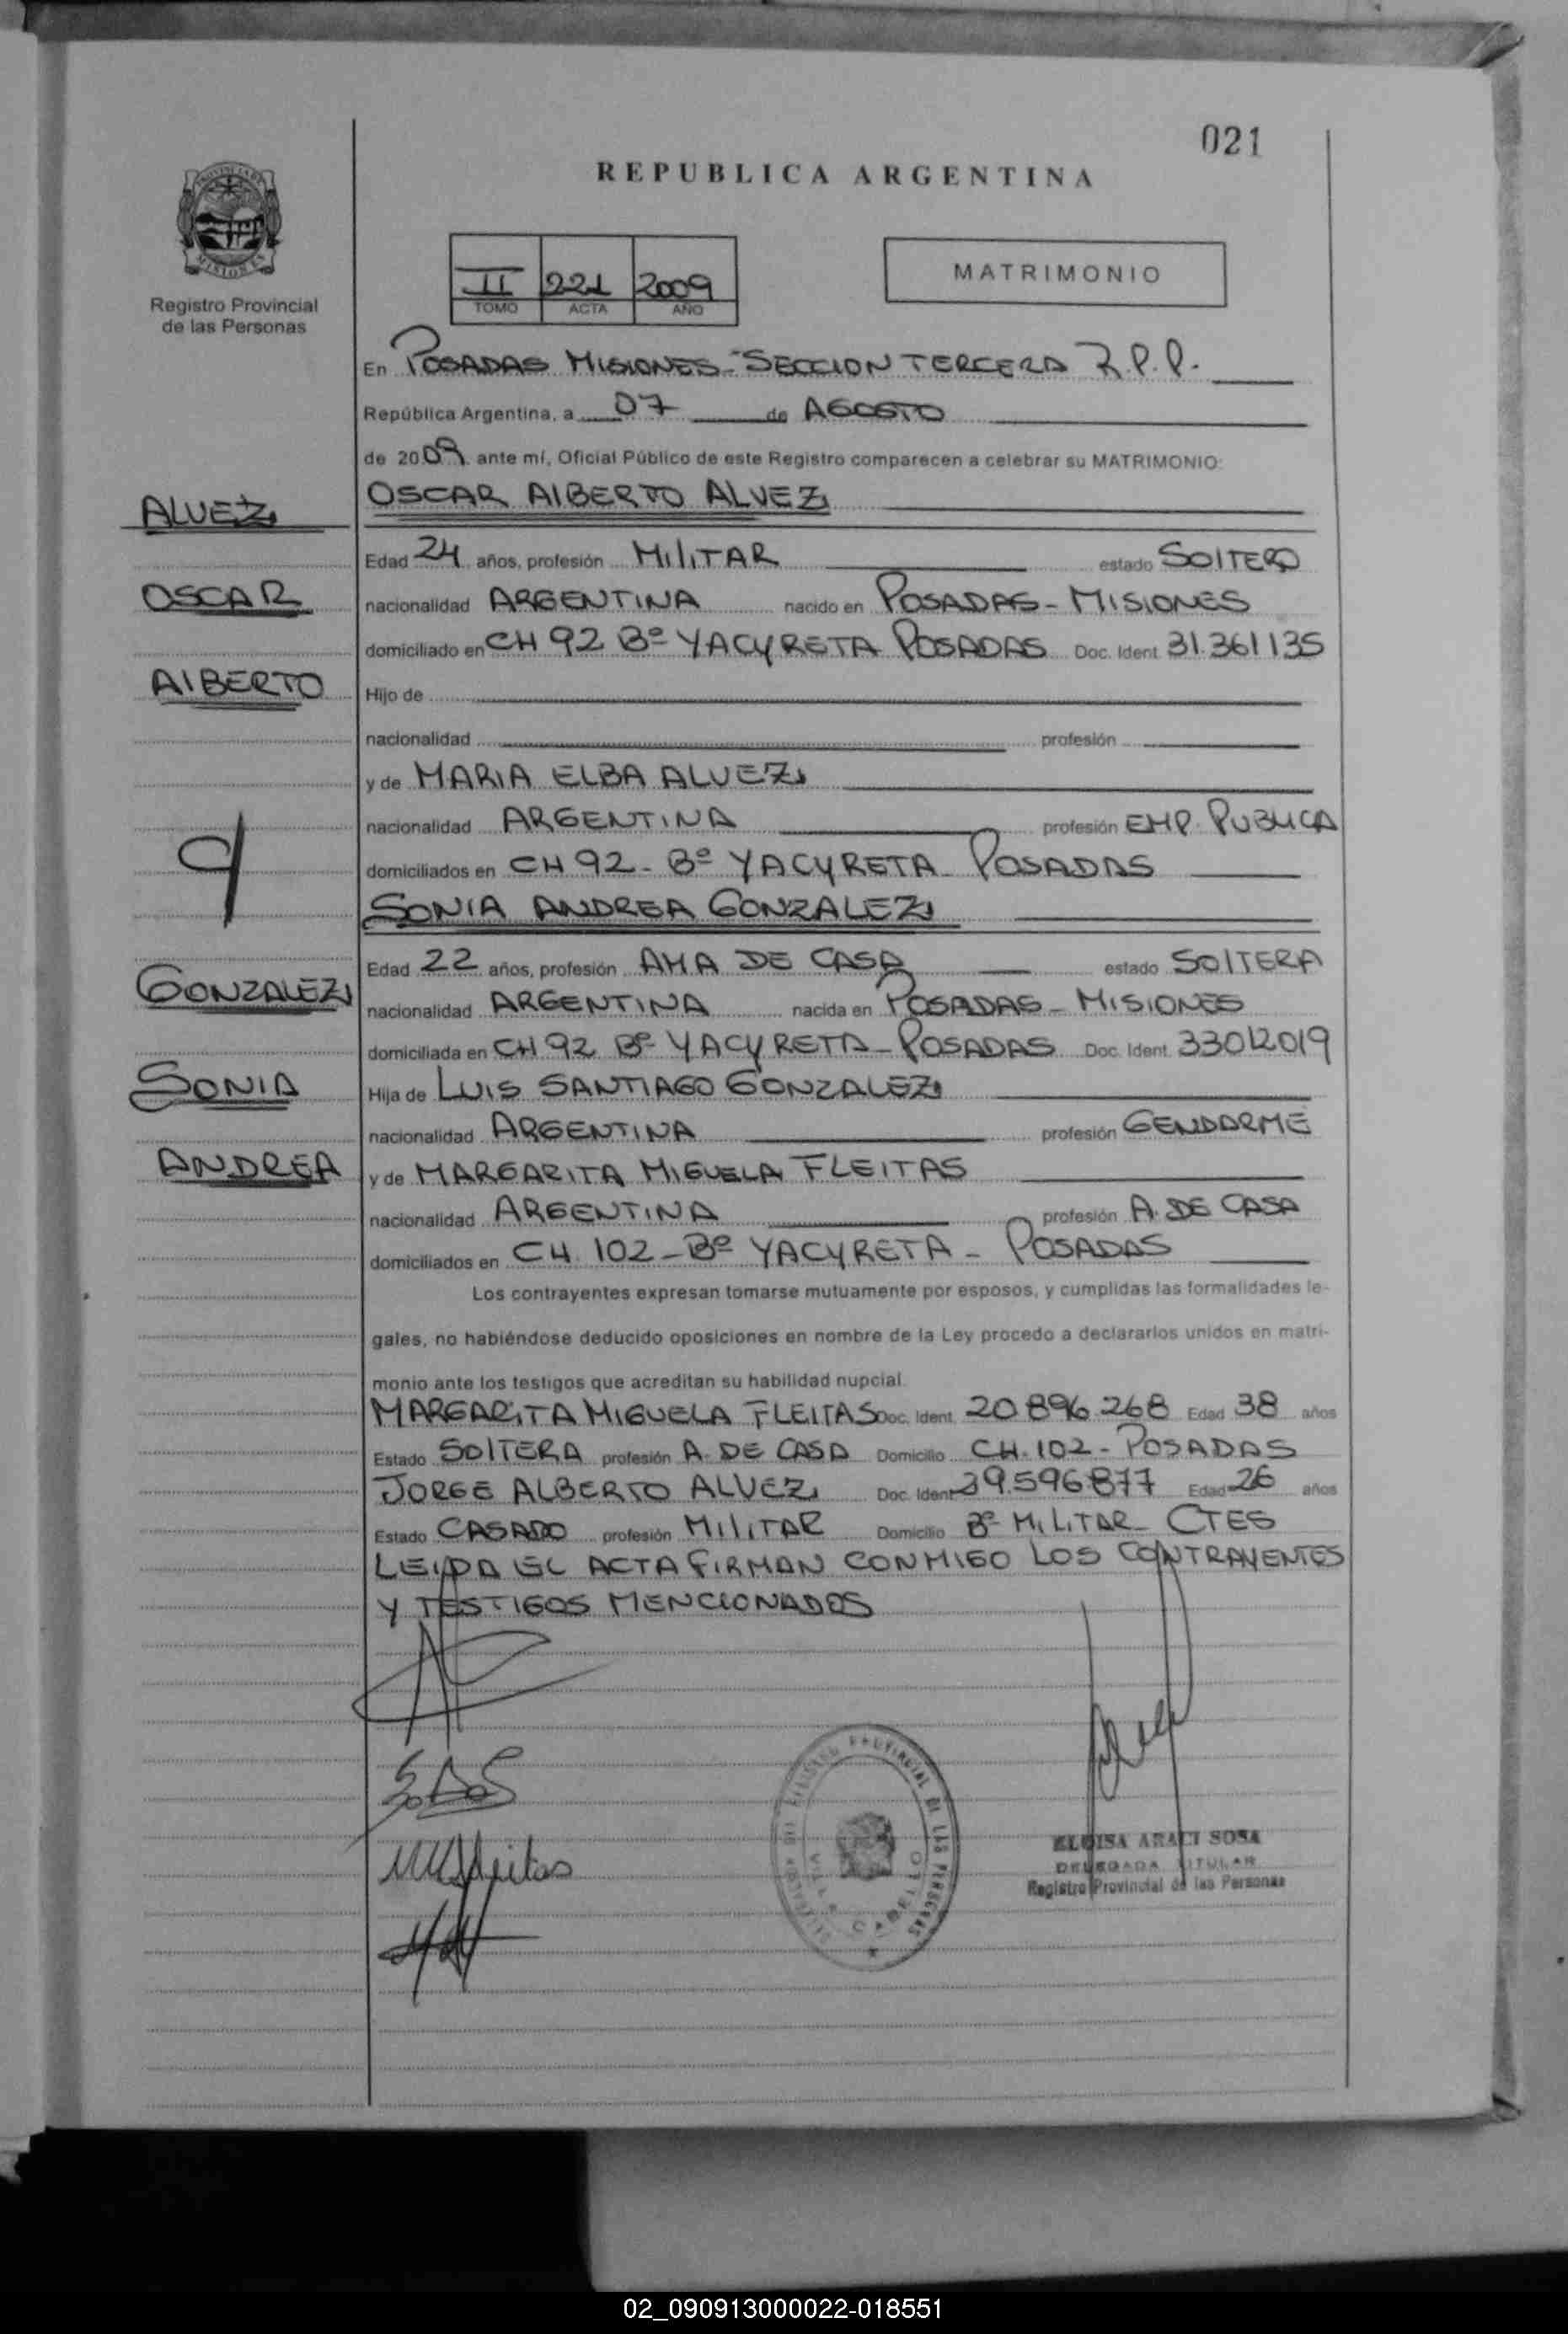 021
REPUBLICA ARGENTINA
PROVINCIA DE
MISIONES
Registro Provincial
de las Personas
II 221 2009
TOMO ACTA AÑO
MATRIMONIO
En POSADAS MISIONES-SECCION TERCERA R.P.P.
República Argentina, a 07 de AGOSTO
de 2009 ante mí, Oficial Público de este Registro comparecen a celebrar su MATRIMONIO:
OSCAR AlBERTO ALVEZ
ALVEZ
Edad 24 años, profesión MIlITAR estado SOlTERO
OSCAR
nacionalidad ARGENTINA nacido en POSADAS-MISIONES
domiciliado en CH 92 Bº YACYRETA POSADAS Doc. Ident 31.361135
AlBERTO
Hijo de
nacionalidad profesión
y de MARIA ELBA ALVEZ
nacionalidad ARGENTINA profesión EMP. PUBLICA
domiciliados en CH 92- Bº YACYRETA- POSADAS
SONIA ANDREA GONZALEZ
Edad 22 años, profesión AMA DE CASA estado SOlTERA
GONZALEZ
nacionalidad ARGENTINA nacida en POSADAS-MISIONES
domiciliada en CH 92 Bº YACYRETA-POSADAS Doc. Ident. 33012019
SONIA
Hija de LUIS SANTIAGO GONZALEZ
nacionalidad ARGENTINA profesión GENDARME
ANDREA
y de MARGARITA MIGUELA FLEITAS
nacionalidad ARGENTINA profesión A. DE CASA
domiciliados en CH. 102-Bº YACYRETA- POSADAS
Los contrayentes expresan tomarse mutuamente por esposos, y cumplidas las formalidades le-
gales, no habiéndose deducido oposiciones en nombre de la Ley procedo a declararlos unidos en matri-
monio ante los testigos que acreditan su habilidad nupcial.
MARGARITA MIGUELA FLEITAS Doc. Ident. 20.896.268 Edad 38 años
Estado SOlTERA profesión A. DE CASA Domicilio CH. 102-POSADAS
JORGE ALBERTO ALVEZ Doc. Ident 29.596877 Edad 26 años
Estado CASADO profesión MIlITAR Domicilio Bº MILITAR- CTES
LEIDA EL ACTA FIRMAN CONMIGO LOS CONTRAYENTES
Y TESTIGOS MENCIONADOS
REGISTRO PROVINCIAL DE LAS PERSONAS
ELOISA ARACI SOSA
DELEGADA TITULAR
Registro Provincial de las Personas
02_090913000022-018551